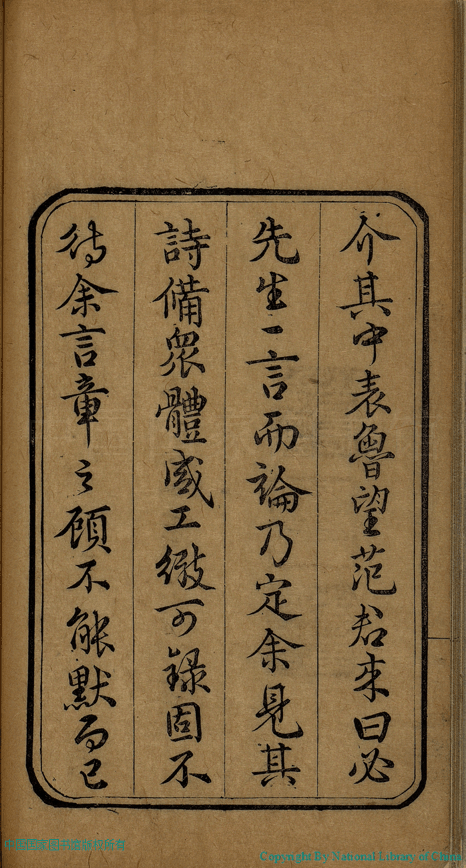 介其中表魯望范君來曰必
先生一言而論乃定余見其
詩備衆體咸工緻可錄固不
待余言章之顧不能默而已
Copyright By National Library of China